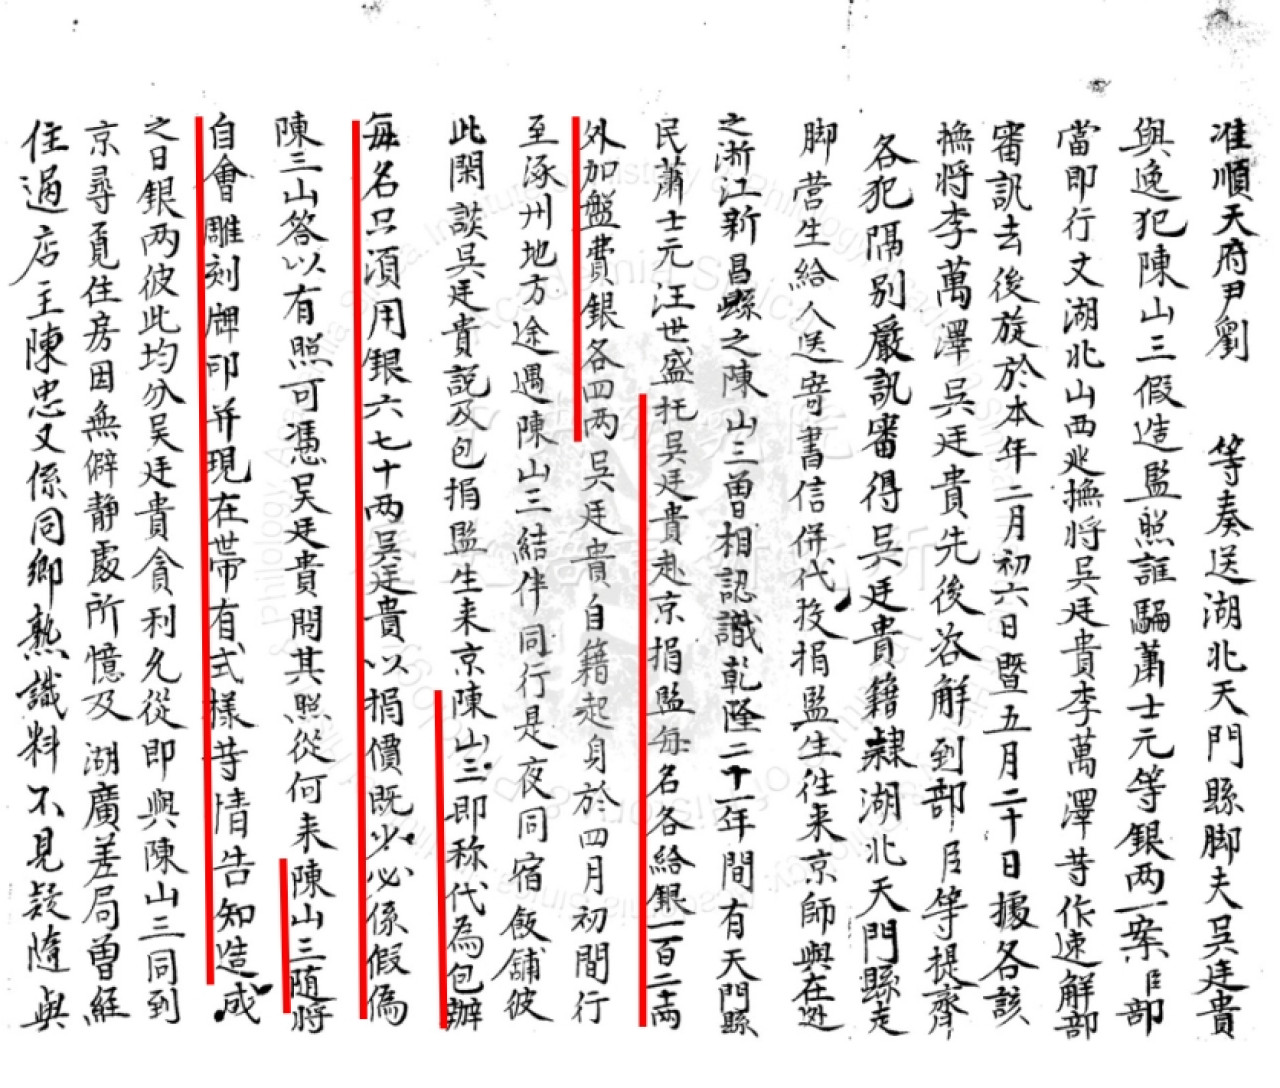 准順天府尹劉　等奏送湖北天門縣脚夫吳廷貴
與逸犯陳山三假造監照誆騙蕭士元等銀两一案臣部
當即行文湖北山西廵撫將吳廷貴李萬澤等作速解部
審訊去後旋於本年二月初六日暨五月二十日據各該
撫將李萬澤吳廷貴先後咨解到部臣等提齊
各犯隔别嚴訊審得吳廷貴籍隸湖北天門縣走
脚营生給人送寄書信併代投捐監生往来京師與在逃
之浙江新昌縣之陳山三曽相認識乾隆二十一年間有天門縣
民蕭士元汪世盛托吳廷貴赴京捐監每名各給銀一百二十两
外加盤費銀各四两吳廷貴自籍起身於四月初間行
至涿州地方途遇陳山三結伴同行是夜同宿飯舖彼
此閑談吳廷貴説及包捐監生来京陳山三即称代為包辦
每名只湏用銀六七十两吳廷貴以捐價既少必係假偽
陳三山答以有照可凴吴廷貴問其照從何来陳山三随將
自會雕刻牌印并現在带有式樣等情告知造成
之日銀两彼此均分吴廷貴貪利允從即與陳山三同到
京尋覓住房因無僻静處所憶及湖廣差局曽經
住過店主陳忠又係同鄉熟識料不見疑隨與
Academia Sinica